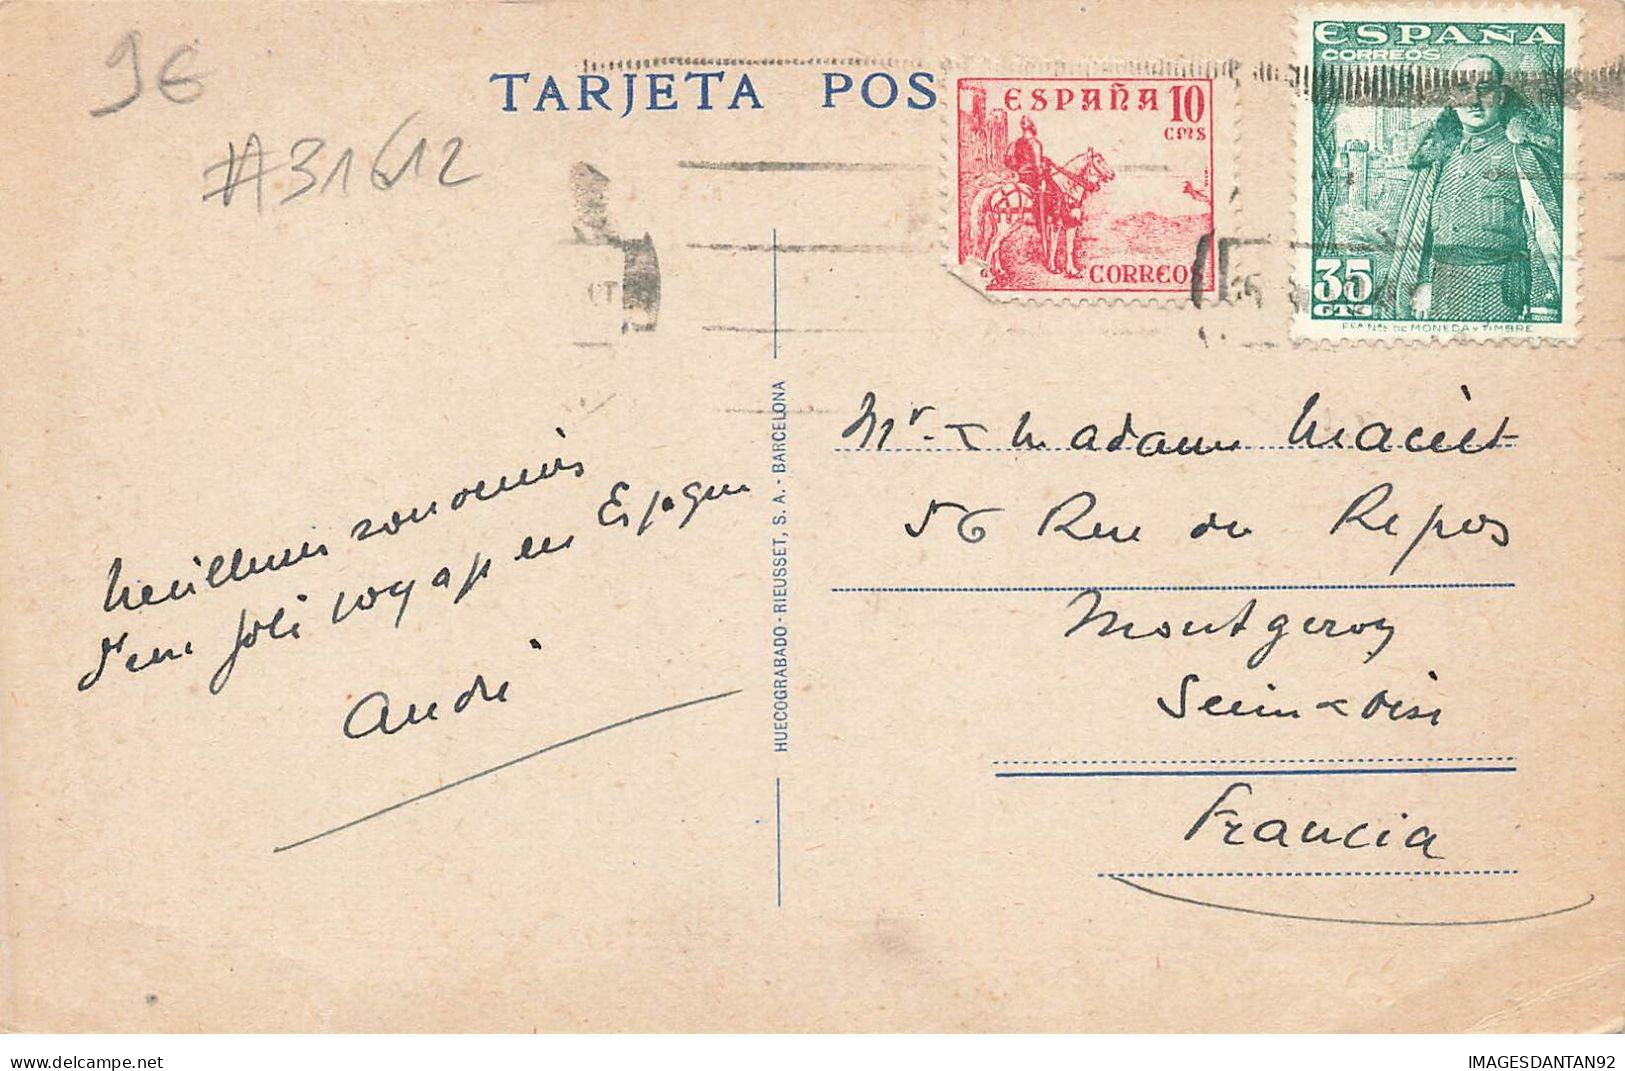 9€
#31612
TARJETA POS
ESPAÑA 10
CMS
CORREOS
ESPAÑA
CORREOS
35
CTS
FCA NAL DE MONEDA Y TIMBRE
Meilleurs souvenirs
d'un joli voyage en Espagne
André
HUECOGRABADO - RIEUSSET, S. A. - BARCELONA
Mr & Madame
56 Rue du Repos
Montgeron
Seine & Oise
Francia
delcampe.net
IMAGESDANTAN92